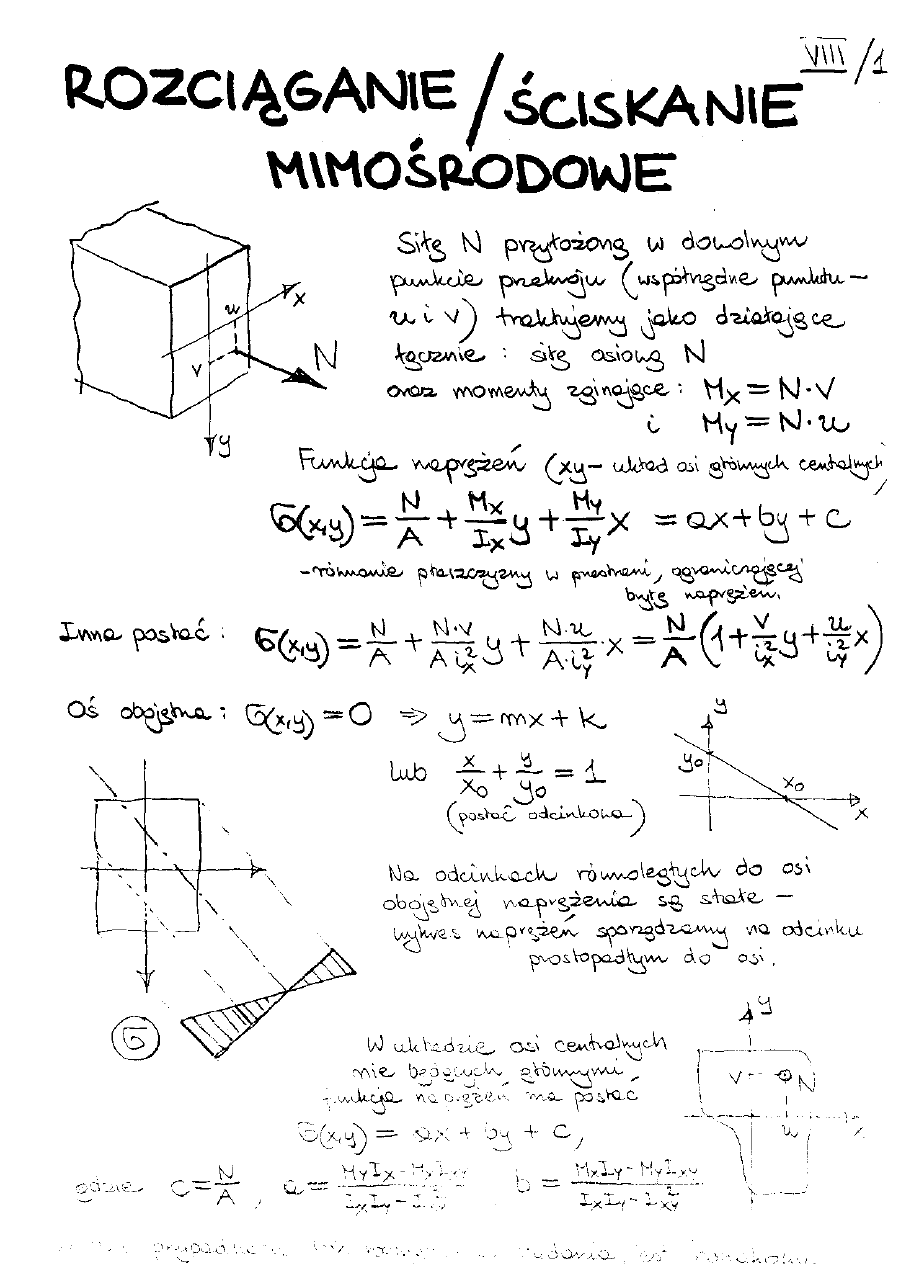 VIII/1
ROZCIĄGANIE/ŚCISKANIE
MIMOŚRODOWE
Siłę N przyłożoną w dowolnym
punkcie przekroju (współrzędne punktu –
u i v) traktujemy jako działające
łącznie: siłę osiową N
oraz momenty zginające: Mx = N·v
i My = N·u
x
u
N
v
y
Funkcja naprężeń (xy – układ osi głównych centralnych)
σ(x,y) = N/A + Mx/Ix y + My/Iy x = ax + by + c
– równanie płaszczyzny w przestrzeni, ograniczającej
bryłę naprężeń.
Inna postać: σ(x,y) = N/A + N·v/(A ix²) y + N·u/(A·iy²) ·x = N/A (1 + v/ix² y + u/iy² x)
Oś obojętna: σ(x,y) = 0 ⇒ y = mx + k
lub x/x₀ + y/y₀ = 1
(postać odcinkowa)
y
y₀
x₀
x
Na odcinkach równoległych do osi
obojętnej naprężenia są stałe –
wykres naprężeń sporządzamy na odcinku
prostopadłym do osi.
σ
W układzie osi centralnych
nie będących głównymi
funkcja naprężeń ma postać
σ(x,y) = ax + by + c,
gdzie c = N/A, a = (MyIx – MxIxy)/(IxIy – Ixy²) b = (MxIy – MyIxy)/(IxIy – Ixy²)
y
v
N
u
x